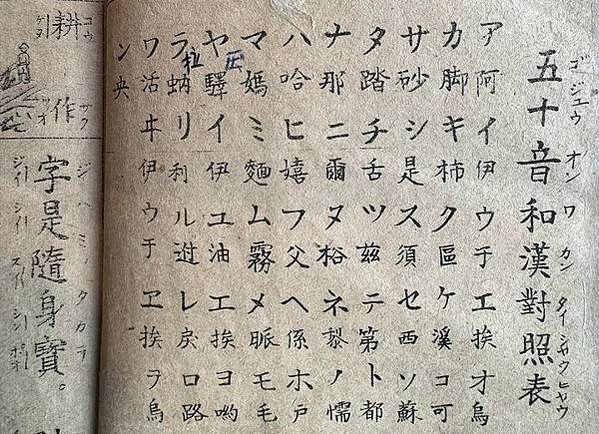 五十音和漢對照表
ゴ ジエウ オン ワ カン タイ シヤウ ヒヤウ
ア阿イ伊ウ于エ挨オ烏
カ脚キ柿ク區ケ溪コ可
サ砂シ是ス須セ西ソ蘇
タ踏チ舌ツ茲テ第ト都
ナ那ニ爾ヌネノ懦
ハ哈ヒ嬉フ父ヘ係ホ戸
マ媽ミ麵ム霧メ脈モ毛
ヤ驛イ伊ユ油エ挨ヨ喲
ラ蚋リ利ルレ戾ロ路
拉
ワ活ヰ伊ウ于ヱ挨ヲ烏
ン央
耕作
コウ サク
字是隨身寶。
ジハミノタカラ